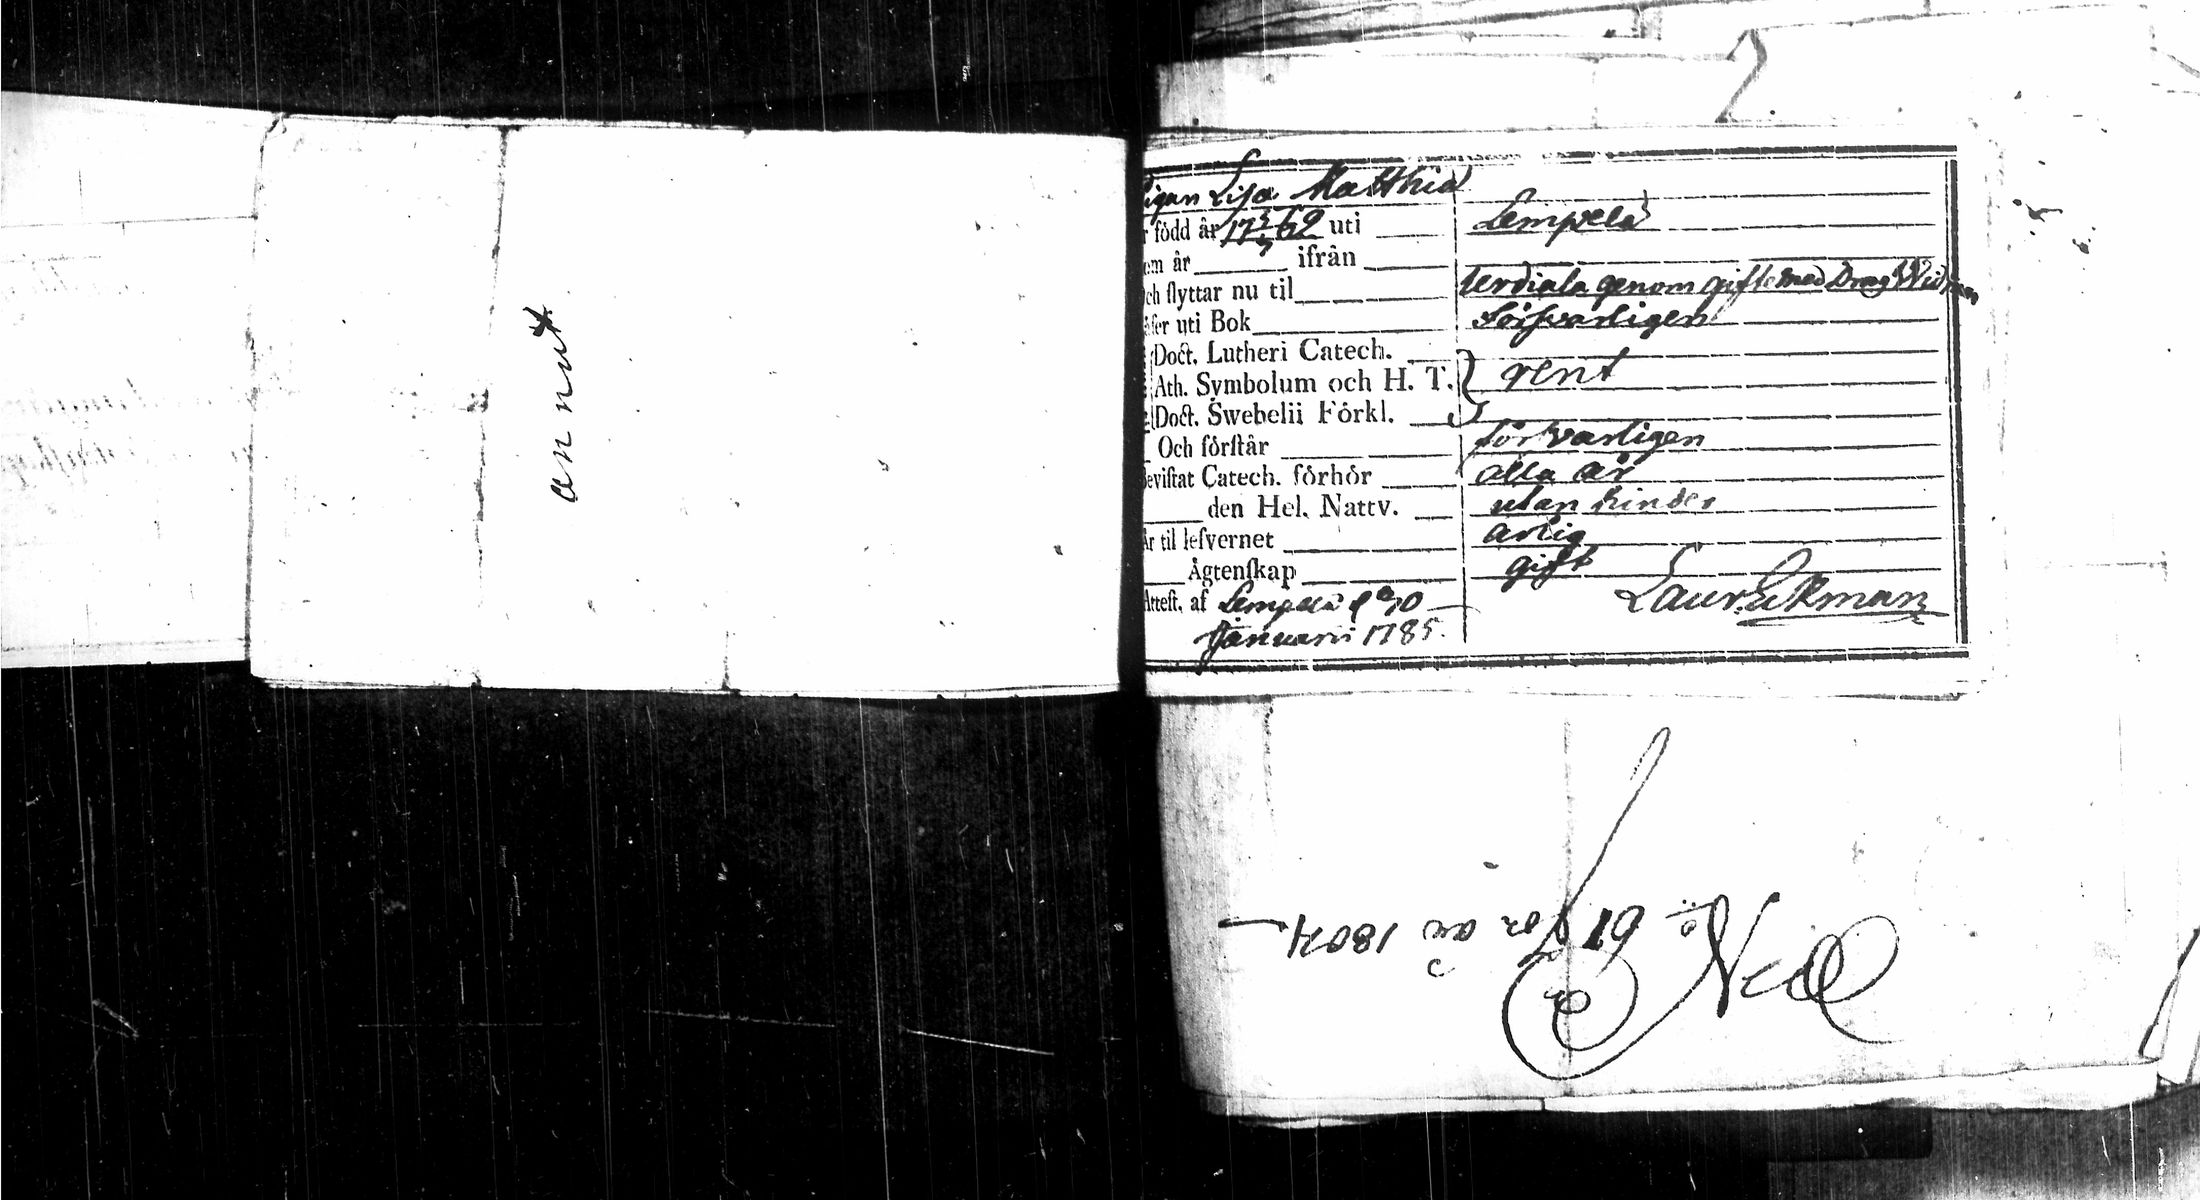 an nut
igan Lisa Matthid
född år 17 5/7 62 uti Lempelä
om år ifrån
ch flyttar nu til Urdiala genom gifte med Drag Widman
äser uti Bok Försvarligen
Doct. Lutheri Catech.
Ath. Symbolum och H. T. } rent
Doct. Swebelii Förkl.
Och förstår försvarligen
Bevistat Catech. förhör alla år
den Hel. Nattv. utan hinder
Är til lefvernet ärlig
Ägtenskap gift
Attest. af Lempälä d 10
Januarii 1785.
Laur. Ekman
No 19 för år 1804